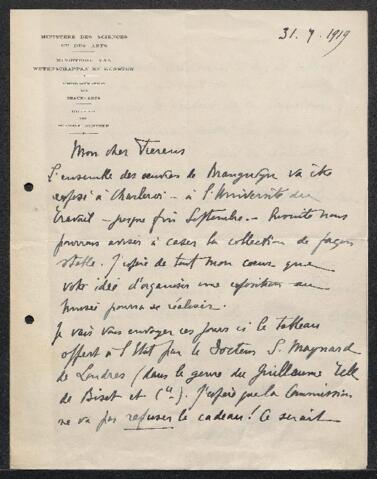 MINISTÈRE DES SCIENCES
ET DES ARTS
MINISTERIE VAN
WETENSCHAPPEN EN KUNSTEN
BEAUX-ARTS
31.7.1919
Mon cher Fierens
L'ensemble des œuvres de Brangwyn va être
exposé à Charleroi – à l'Université du
Travail – jusque fin Septembre. – Ensuite nous
pourrons aviser à caser la collection de façon
stable. J'espère de tout mon cœur que
votre idée d'organiser une exposition au
musée pourra se réaliser.
Je vais vous envoyer ces jours ci le tableau
offert à l'Etat par le Docteur S. Maynard
de Londres (dans le genre du Guillaume Tell
de Bizet et Cie). J'espère que la Commission
ne va pas refuser le cadeau! Ce serait